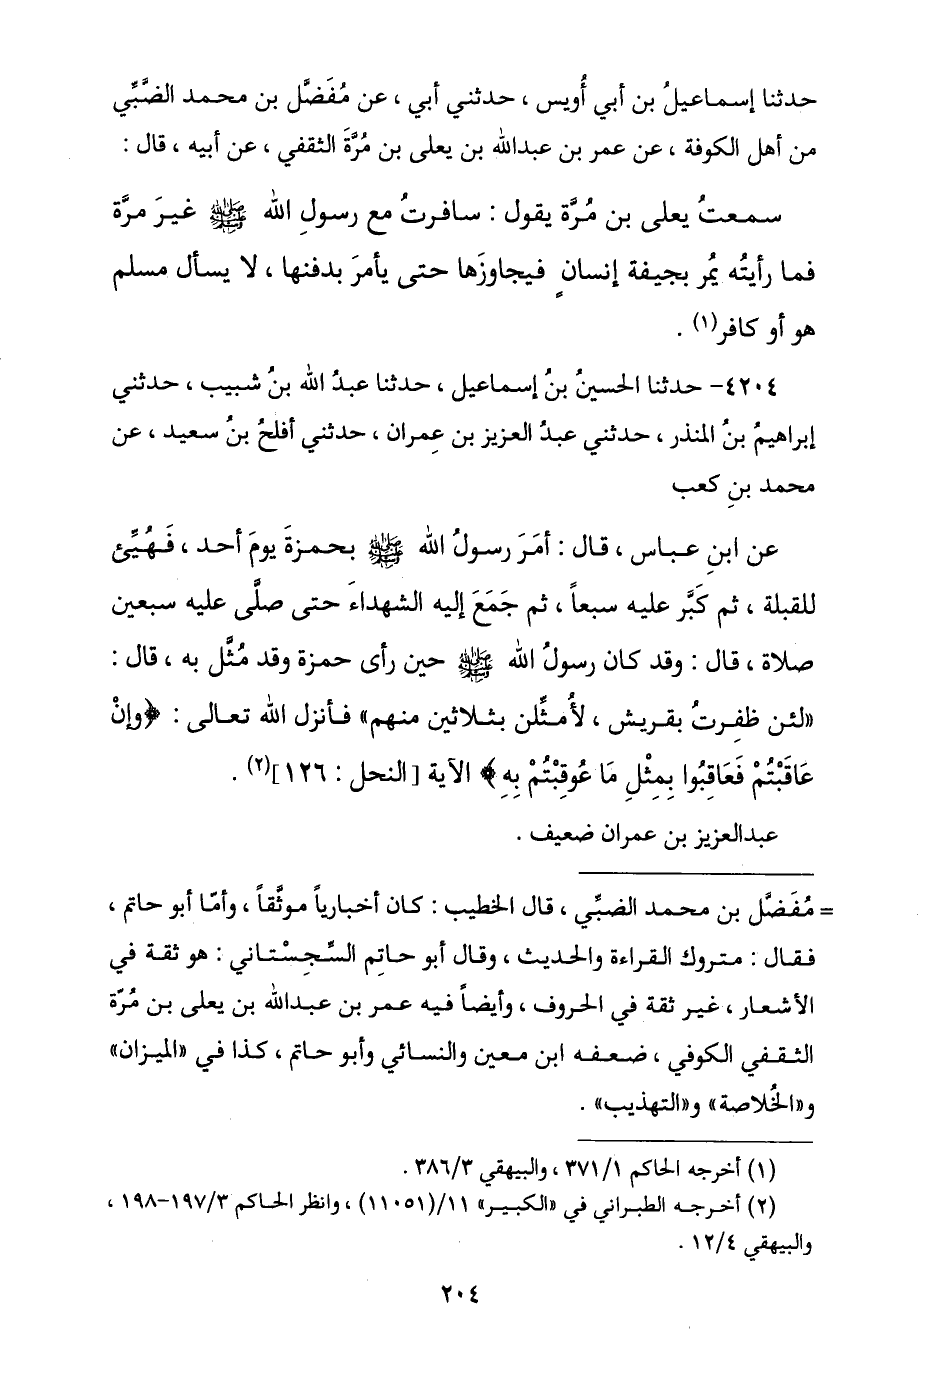 حدثنا إسماعيلُ بن أبي أُويس ، حدثني أبي ، عن مُفَضَّل بن محمد الضَّبِّي
من أهل الكوفة ، عن عمر بن عبدالله بن يعلى بن مُرَّةَ الثقفي ، عن أبيه ، قال :
سمعتُ يعلى بن مُرَّة يقول : سافرتُ مع رسولِ الله ﷺ غيرَ مرَّة
فما رأيتُه يمُر بجيفة إنسانٍ فيجاوزَها حتى يأمرَ بدفنها ، لا يسأل مسلم
هو أو كافر(١) .
٤٢٠٤- حدثنا الحسينُ بنُ إسماعيل ، حدثنا عبدُ الله بنُ شبيب ، حدثني
إبراهيمُ بنُ المنذر ، حدثني عبدُ العزيز بن عِمران ، حدثني أفلحُ بنُ سعيد ، عن
محمد بنِ كعب
عن ابنِ عباس ، قال : أمَرَ رسولُ الله ﷺ بحمزةَ يومَ أحد ، فَهُيِّئ
للقبلة ، ثم كَبَّر عليه سبعاً ، ثم جَمَعَ إليه الشهداءَ حتى صلَّى عليه سبعين
صلاة ، قال : وقد كان رسولُ الله ﷺ حين رأى حمزة وقد مُثِّل به ، قال :
«لئن ظفِرتُ بقريش ، لأُمثِّلن بثلاثين منهم» فأنزل الله تعالى : ﴿وإنْ
عَاقَبْتُمْ فَعَاقِبُوا بِمِثْلِ مَا عُوقِبْتُمْ بِهِ﴾ الآية [النحل : ١٢٦](٢) .
عبدالعزيز بن عمران ضعيف .
= مُفَضَّل بن محمد الضبِّي ، قال الخطيب : كان أخبارياً موثَّقاً ، وأمّا أبو حاتم ،
فقال : متروك القراءة والحديث ، وقال أبو حاتِم السِّجِسْتاني : هو ثقة في
الأشعار ، غير ثقة في الحروف ، وأيضاً فيه عمر بن عبدالله بن يعلى بن مُرّة
الثقفي الكوفي ، ضعفه ابن معين والنسائي وأبو حاتم ، كذا في «الميزان»
و«الخُلاصة» و«التهذيب» .
(١) أخرجه الحاكم ٣٧١/١ ، والبيهقي ٣٨٦/٣ .
(٢) أخرجه الطبراني في «الكبير» ١١/(١١٠٥١) ، وانظر الحاكم ١٩٧/٣-١٩٨ ،
والبيهقي ١٢/٤ .
٢٠٤